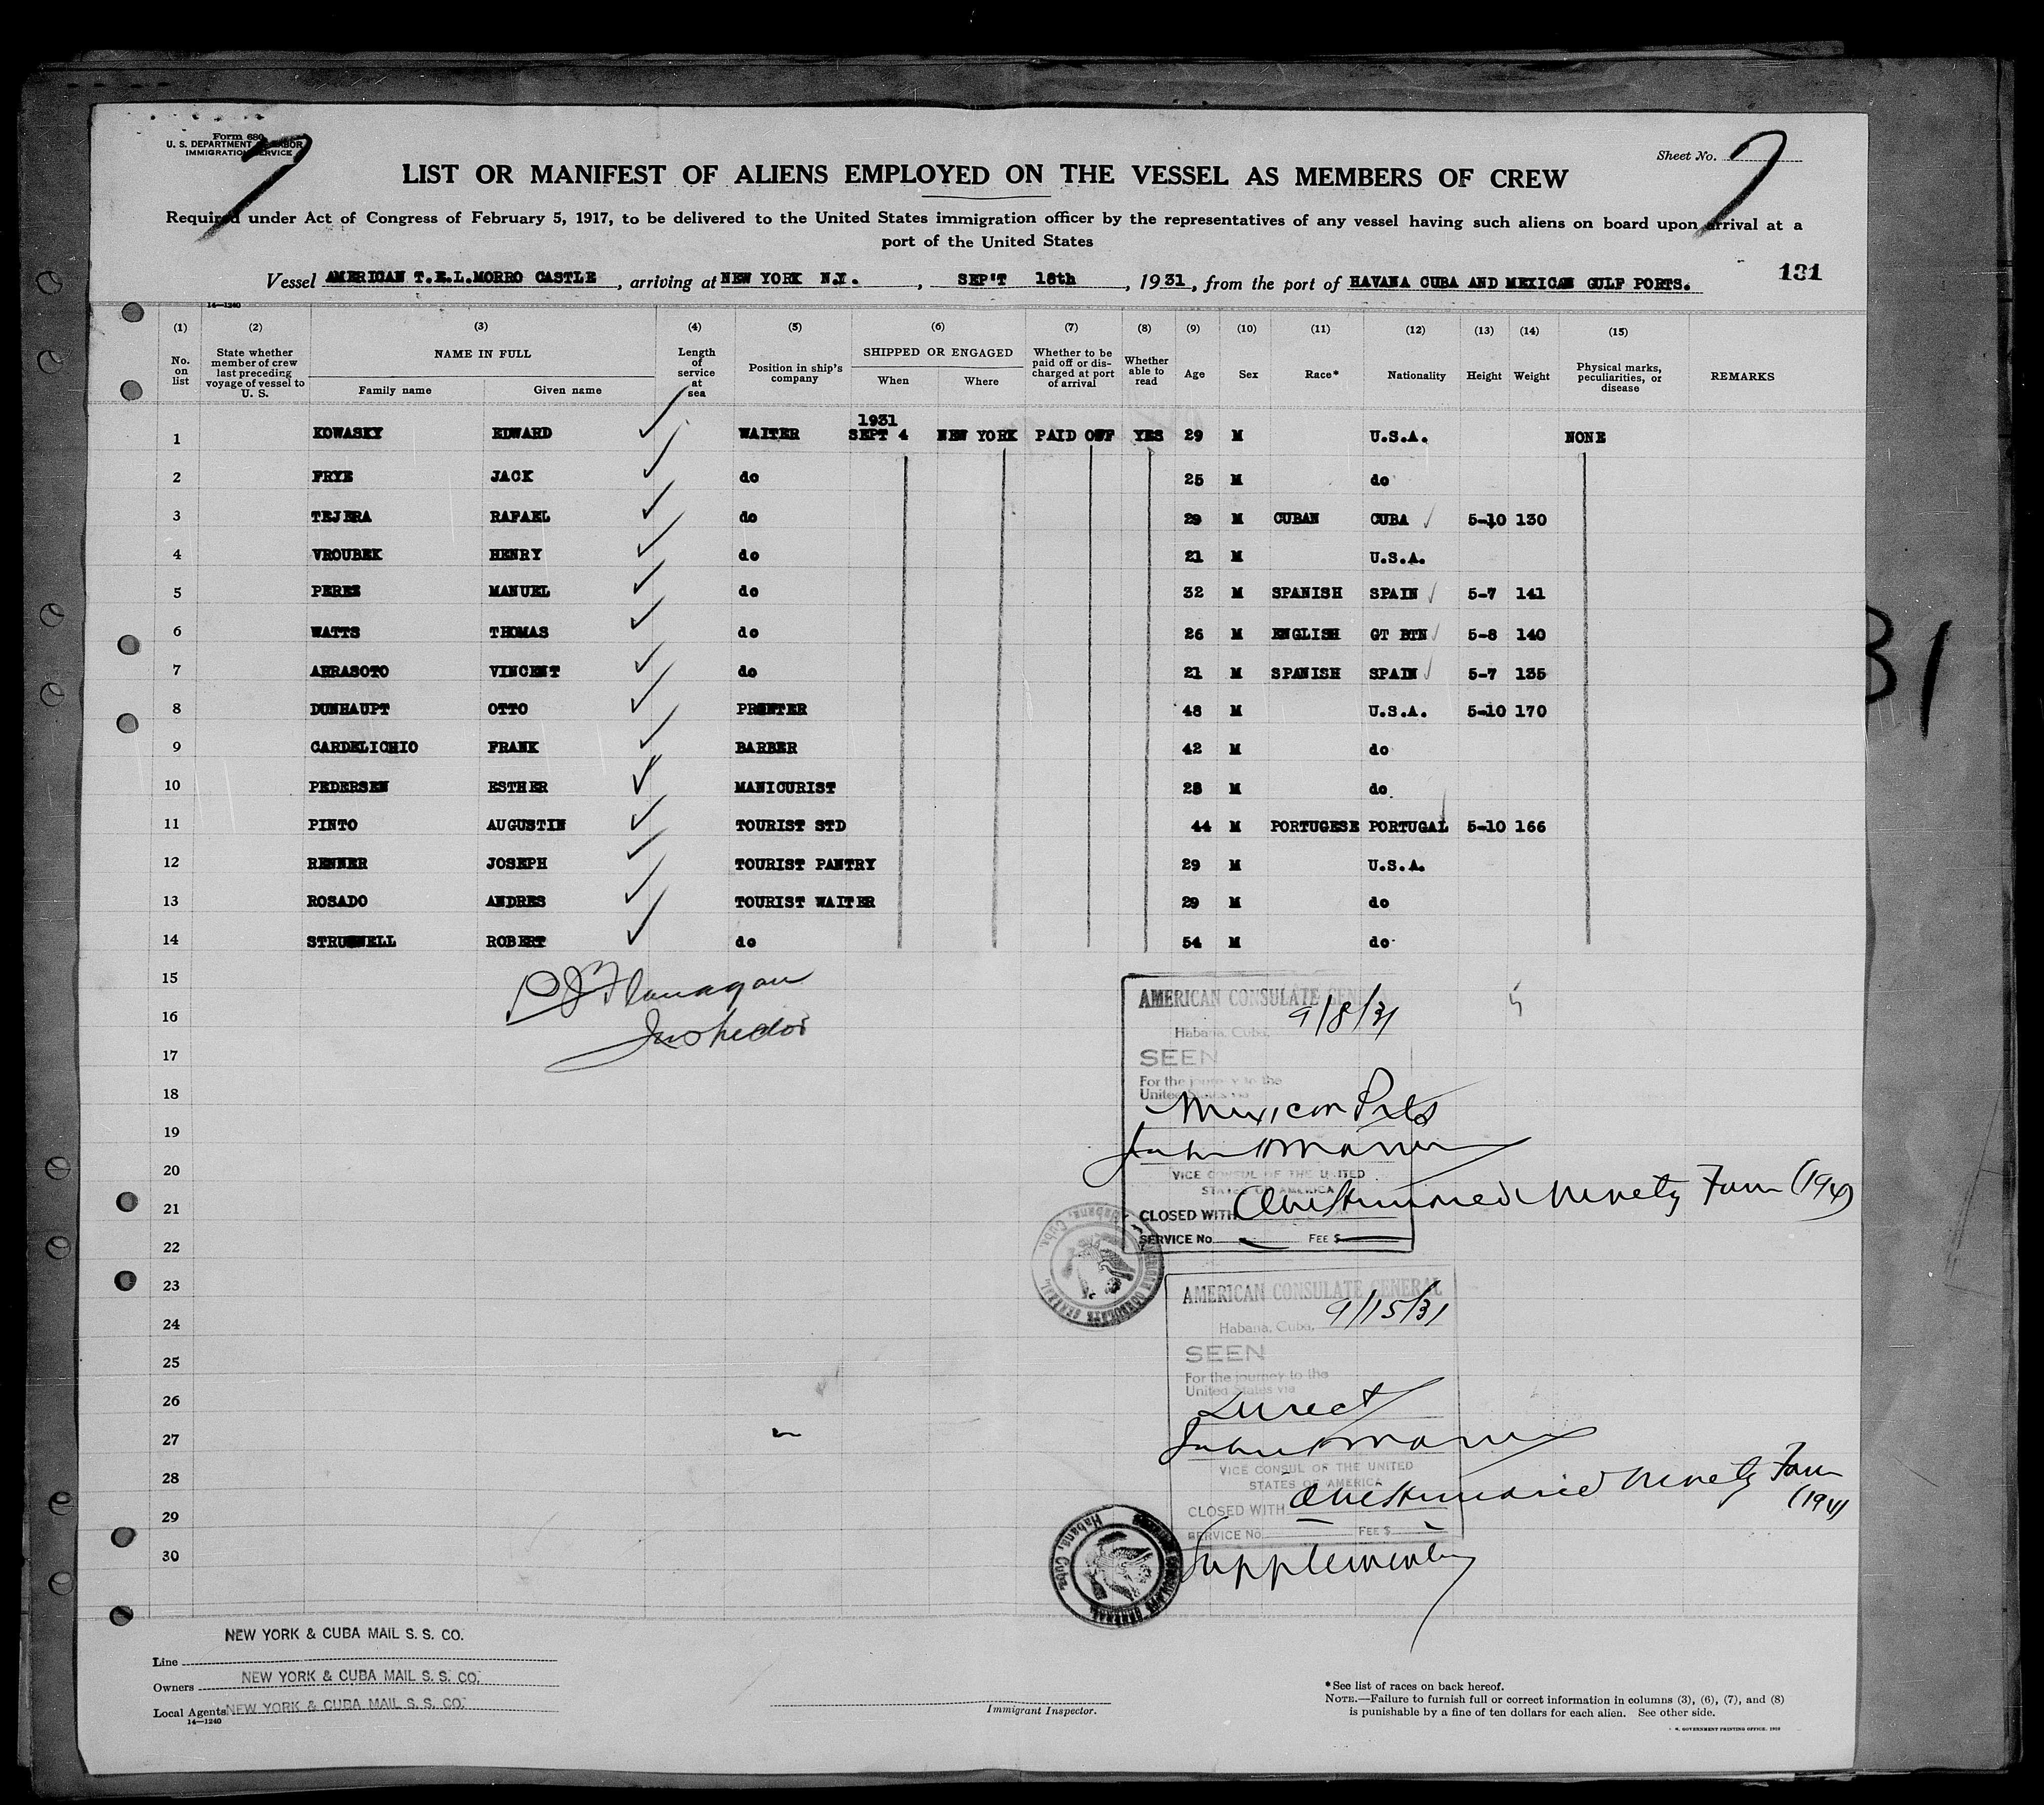 Form 680
U. S. DEPARTMENT OF LABOR
IMMIGRATION SERVICE
7
Sheet No. 7
LIST OR MANIFEST OF ALIENS EMPLOYED ON THE VESSEL AS MEMBERS OF CREW
Required under Act of Congress of February 5, 1917, to be delivered to the United States immigration officer by the representatives of any vessel having such aliens on board upon arrival at a
port of the United States
131
Vessel AMERICAN T.E.L.MORRO CASTLE, arriving at NEW YORK N.Y., SEP'T 18th, 1931, from the port of HAVANA CUBA AND MEXICAN GULF PORTS.
14—1240
(1) (2) (3) (4) (5) (6) (7) (8) (9) (10) (11) (12) (13) (14) (15)
No. on list State whether member of crew last preceding voyage of vessel to U. S. NAME IN FULL Family name Given name Length of service at sea Position in ship's company SHIPPED OR ENGAGED When Where Whether to be paid off or discharged at port of arrival Whether able to read Age Sex Race* Nationality Height Weight Physical marks, peculiarities, or disease REMARKS
1931
1 KOWASKY EDWARD WAITER SEPT 4 NEW YORK PAID OFF YES 29 M U.S.A. NONE
2 FRYE JACK do 25 M do
3 TEJERA RAFAEL do 29 M CUBAN CUBA 5-10 130
4 VROUBEK HENRY do 21 M U.S.A.
5 PEREZ MANUEL do 32 M SPANISH SPAIN 5-7 141
6 WATTS THOMAS do 26 M ENGLISH GT BTN 5-8 140
7 ARRASOTO VINCENT do 21 M SPANISH SPAIN 5-7 135
8 DUNHAUPT OTTO PRINTER 48 M U.S.A. 5-10 170
9 CARDELICHIO FRANK BARBER 42 M do
10 PEDERSEN ESTHER MANICURIST 28 M do
11 PINTO AUGUSTIN TOURIST STD 44 M PORTUGESE PORTUGAL 5-10 166
12 RENNER JOSEPH TOURIST PANTRY 29 M U.S.A.
13 ROSADO ANDRES TOURIST WAITER 29 M do
14 STRUGNELL ROBERT do 54 M do
15
16
17
18
19
20
21
22
23
24
25
26
27
28
29
30
P J Flanagan
Inspector
AMERICAN CONSULATE GEN
Habana, Cuba, 9/8/31
SEEN
For the journey to the
United States via
Mexican Pts
VICE CONSUL OF THE UNITED
STATES OF AMERICA
CLOSED WITH One Hundred Ninety Four (194)
SERVICE No. FEE $
AMERICAN CONSULATE GENERAL
Habana, Cuba.
AMERICAN CONSULATE GENERAL
Habana, Cuba, 9/15/31
SEEN
For the journey to the
United States via
Direct
VICE CONSUL OF THE UNITED
STATES OF AMERICA
CLOSED WITH One Hundred Ninety Four (194)
SERVICE No. FEE $
Supplementary
AMERICAN CONSULATE GENERAL
Habana, Cuba.
31
Line NEW YORK & CUBA MAIL S. S. CO.
Owners NEW YORK & CUBA MAIL S. S. CO.
Local Agents NEW YORK & CUBA MAIL S. S. CO.
14—1240
Immigrant Inspector.
*See list of races on back hereof.
NOTE.—Failure to furnish full or correct information in columns (3), (6), (7), and (8)
is punishable by a fine of ten dollars for each alien. See other side.